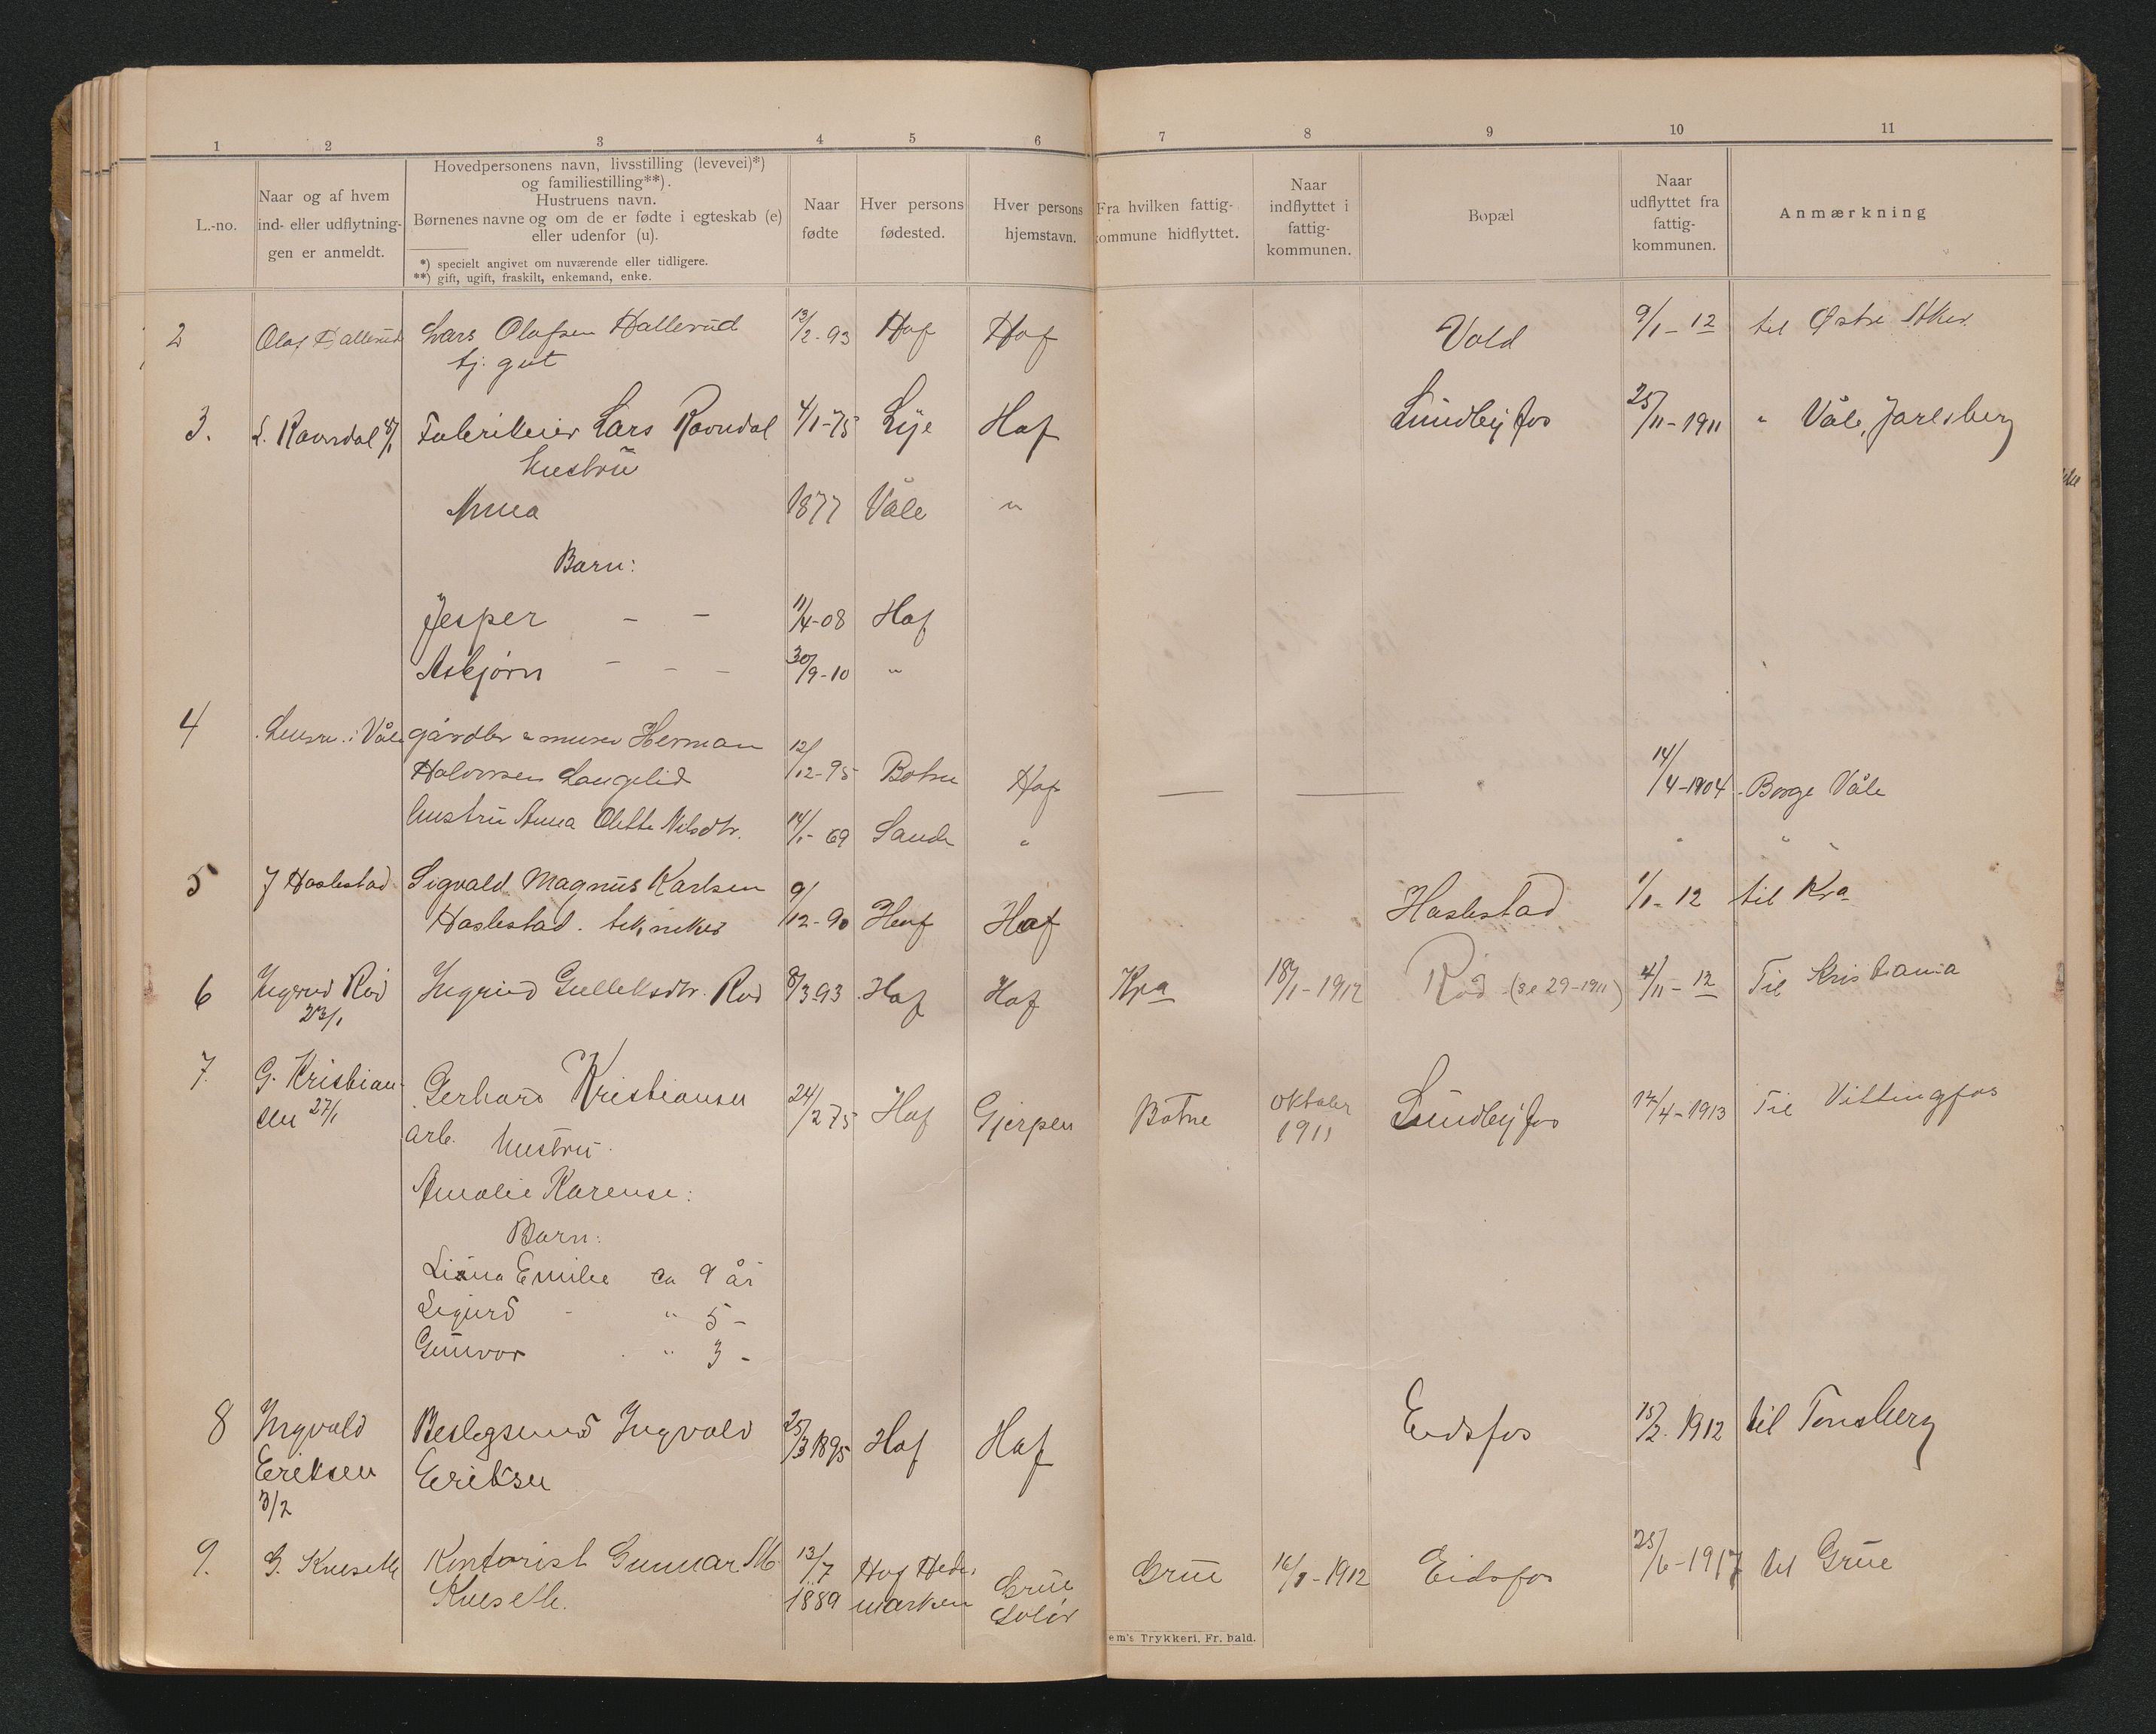 1 2 3 4 5 6 7 8 9 10 11
L.-no.
Naar og af hvem
ind- eller udflytning-
gen er anmeldt.
Hovedpersonens navn, livsstilling (levevei)*)
og familiestilling**).
Hustruens navn.
Børnenes navne og om de er fødte i egteskab (e)
eller udenfor (u).
*) specielt angivet om nuværende eller tidligere.
**) gift, ugift, fraskilt, enkemand, enke.
Naar
fødte
Hver persons
fødested.
Hver persons
hjemstavn.
Fra hvilken fattig-
kommune hidflyttet.
Naar
indflyttet i
fattig-
kommunen.
Bopæl
Naar
udflyttet fra
fattig-
kommunen.
Anmærkning
2 Olaf Hallerud Lars Olafsen Hallerud 12/2-93 Hof Hof Vold 9/1-12 til Østre Aker
tj. gut
3. L. Ravndal 8/1 Fabrikeier Lars Ravndal 4/1-75 Lye Hof Sundbyfos 25/11-1911 " Våle, Jarlsberg
hustru
Anna 1877 Våle "
Barn:
Jesper - - 11/4-08 Hof
Asbjørn - - - 30/9-10 "
4 Lensm. i Våle gårdbr & murer Herman
Halvorsen Langelid 12/12-95 Botne Hof — — 14/4-1904 Borge Våle
hustru Anna Olette Nilsdtr. 14/1-69 Sande " " " "
5 J Haslestad Sigvald Magnus Karlsen 9/12-90 Hof Hof Haslestad 1/1-12 til Kra
Haslestad. tekniker
6 Ingrid Rød Ingrid Gulleksdtr. Rød 8/3 93 Hof Hof Kra 18/1-1912 Rød (se 29-1911) 4/11-12 Til Kristiania
23/1
7. G. Kristian- Gerhard Kristiansen 24/2 75 Hof Gjerpen Botne oktober Sundbyfos 14/4-1913 Til Vittingfos
sen 27/1 arb. hustru 1911
Amalie Karense:
Barn:
Lina Emilie ca 9 år
Sigurd - " 5 -
Gunvor " 3 -
8 Ingvald Beslagsmed Ingvald 25/3 1895 Hof Hof Eidsfos 15/2. 1912 til Tønsberg
Eriksen Eriksen
3/2
9. G. Kneseth Kontorist Gunnar M. 13/7 Hof Hede- Grue Grue 16/1-1912 Eidsfos 25/6-1917 til Grue
Kneseth. 1889 marken Solør
em's Trykkeri, Fr. hald.